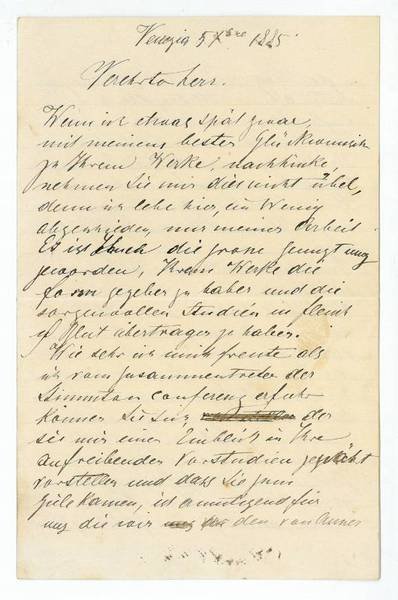 Venezia 5 Xbre 1885
Verehrter Herr.
Wenn ich etwas spät zwar,
mit meinem besten Glückwunsch
zu Ihrem Werke, nachhinke,
nehmen Sie mir dies nicht übel,
denn ich lebe hier, ein Wenig
abgeschieden, nur meiner Arbeit
Es ist Ihnen die grosse Genugtuung
geworden, Ihrem Werke die
Form gegeben zu haben und die
sorgenvollen Studien in Fleisch
u Blut übertragen zu haben.
Wie sehr ich mich freute als
ich vom Zusammentreten der
Stimmton Conferenz erfuhr
können Sie sich der
sie mir einen Einblick in Ihre
aufreibenden Vorstudien
vorstellen und dass Sie zum
Ziele kamen, ist für
uns die wir den von